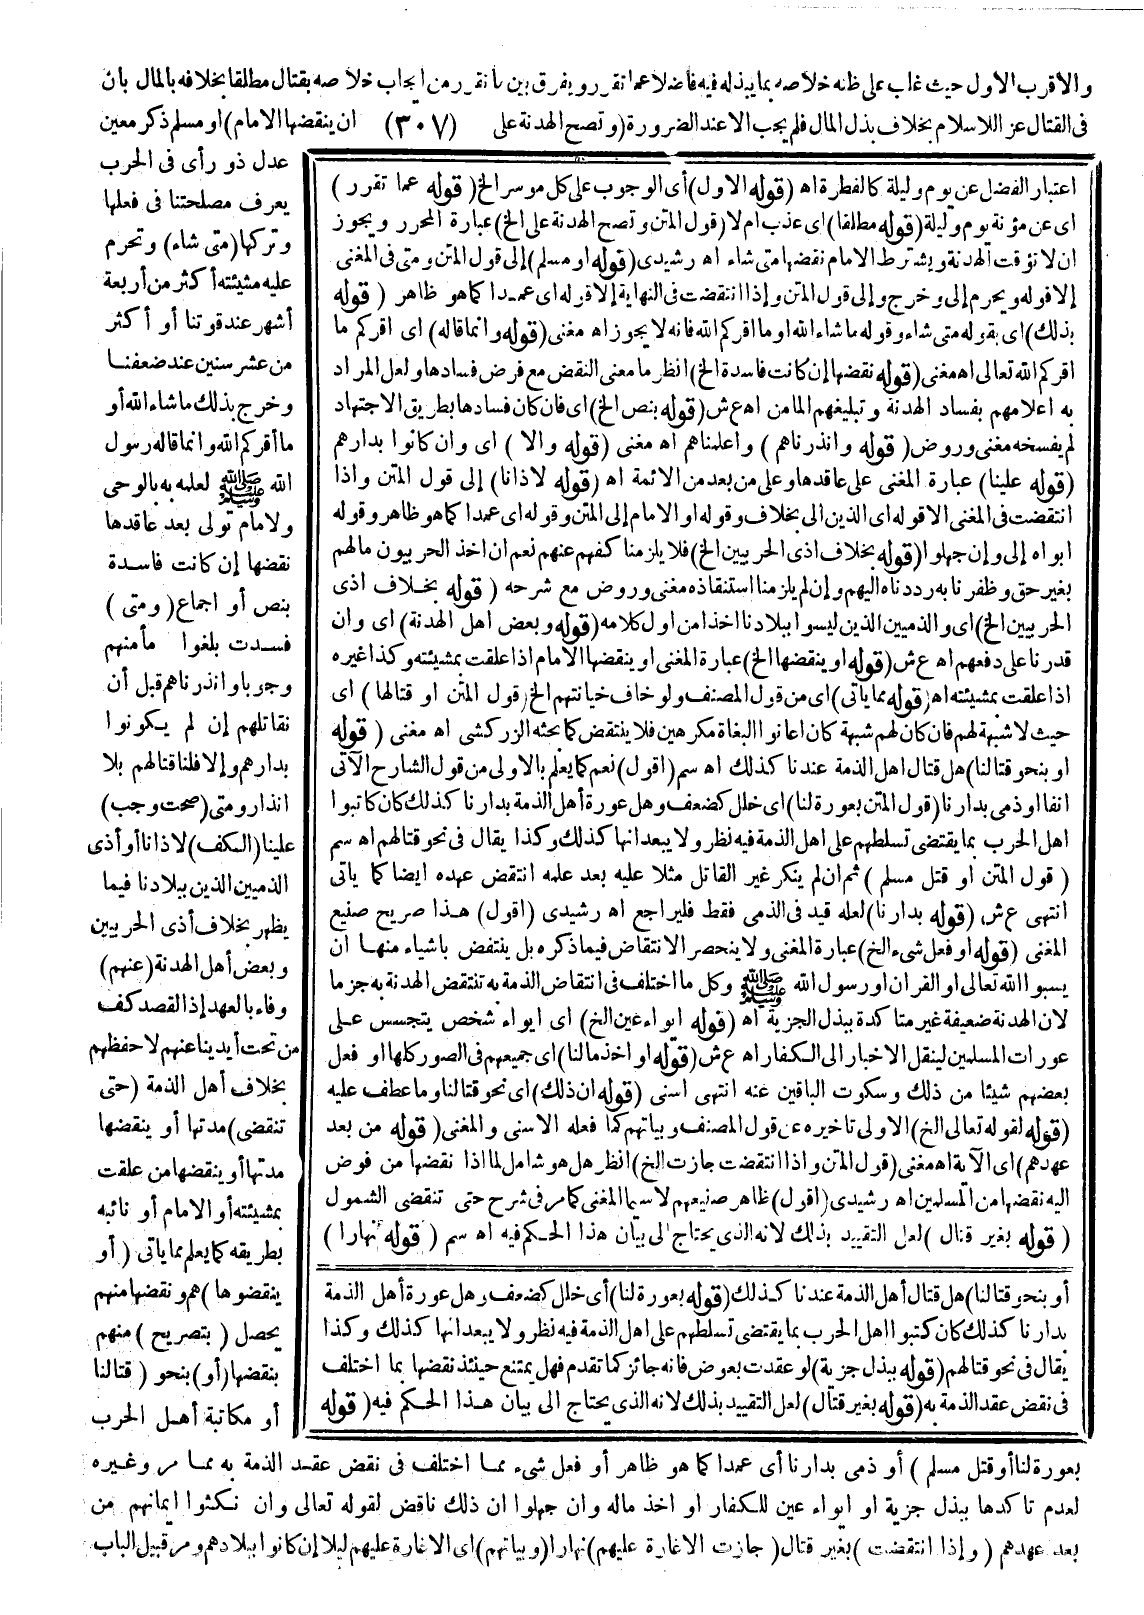 والاقرب الاول حيث غلب على ظنه خلاصه بما يبذله فيه فاضلا عما تقرر ويفرق بين ما تقرر من ايجاب خلاصه بقتال مطلقا بخلافه بالمال بان
فى القتال عز الاسلام بخلاف بذل المال فلم يجب الا عند الضرورة (وتصح الهدنة على (٣٠٧) ان ينقضها الامام) او مسلم ذكر معين
عدل ذو رأى فى الحرب
يعرف مصلحتنا فى فعلها
وتركها (متى شاء) وتحرم
عليه مشيئته أكثر من أربعة
أشهر عند قوتنا أو أكثر
من عشر سنين عند ضعفنا
وخرج بذلك ما شاء الله أو
ما أقركم الله وانما قاله رسول
الله ﷺ لعلمه به بالوحى
ولامام تولى بعد عاقدها
نقضها إن كانت فاسدة
بنص أو اجماع (ومتى)
فسدت بلغوا مأمنهم
وجوبا وانذرناهم قبل أن
نقاتلهم إن لم يكونوا
بدارهم وإلا فلنا قتالهم بلا
انذار ومتى (صحت وجب)
علينا (الكف) لاذانا أو أذى
الذميين الذين ببلادنا فيما
يظهر بخلاف أذى الحربيين
وبعض أهل الهدنة (عنهم)
وفاء بالعهد إذ القصد كف
من تحت أيدينا عنهم لا حفظهم
بخلاف أهل الذمة (حتى
تنقضى) مدتها أو ينقضها
مدتها أو ينقضها من علقت
بمشيئته أو الامام أو نائبه
بطريقه كما يعلم مما يأتى (أو
ينقضوها) هم ونقضها منهم
يحصل (بتصريح) منهم
بنقضها (أو) بنحو (قتالنا
أو مكاتبة أهل الحرب
اعتبار الفضل عن يوم وليلة كالفطرة اه (قوله الاول) أى الوجوب على كل موسر الخ (قوله عما تقرر)
اى عن مؤنة يوم وليلة (قوله مطلقا) اى عذب ام لا (قول المتن وتصح الهدنة على الخ) عبارة المحرر ويجوز
ان لا تؤقت الهدنة ويشترط الامام نقضها متى شاء اه رشيدى (قوله او مسلم) إلى قول المتن ومتى فى المغنى
إلا قوله ويحرم إلى وخرج وإلى قول المتن وإذا انتقضت فى النهاية إلا قوله اى عمدا كما هو ظاهر (قوله
بذلك) اى بقوله متى شاء وقوله ما شاء الله او ما اقركم الله فانه لا يجوز اه مغنى (قوله وانما قاله) اى اقركم ما
اقركم الله تعالى اه مغنى (قوله نقضها إن كانت فاسدة الخ) انظر ما معنى النقض مع فرض فسادها ولعل المراد
به اعلامهم بفساد الهدنة وتبليغهم المامن اه ع ش (قوله بنص الخ) اى فان كان فسادها بطريق الاجتهاد
لم يفسخه مغنى وروض (قوله وانذرناهم) واعلمناهم اه مغنى (قوله والا) اى وان كانوا بدارهم
(قوله علينا) عبارة المغنى على عاقدها وعلى من بعد من الائمة اه (قوله لاذانا) إلى قول المتن واذا
انتقضت فى المغنى الا قوله اى الذين الى بخلاف وقوله او الامام إلى المتن وقوله اى عمدا كما هو ظاهر وقوله
ابواه إلى وإن جهلوا (قوله بخلاف اذى الحربيين الخ) فلا يلزمنا كفهم عنهم نعم ان اخذ الحربيون مالهم
بغير حق وظفرنا به رددناه اليهم وإن لم يلزمنا استنقاذه مغنى وروض مع شرحه (قوله بخلاف اذى
الحربيين الخ) اى والذميين الذين ليسوا ببلادنا اخذا من اول كلامه (قوله وبعض اهل الهدنة) اى وان
قدرنا على دفعهم اه ع ش (قوله او ينقضها الخ) عبارة المغنى او ينقضها الامام اذا علقت بمشيئته وكذا غيره
اذا علقت بمشيئته اه (قوله مما ياتى) اى من قول المصنف ولو خاف خيانتهم الخ (قول المتن او قتالنا) اى
حيث لا شبهة لهم فان كان لهم شبهة كان اعانوا البغاة مكرهين فلا ينتقض كما بحثه الزركشى اه مغنى (قوله
او بنحو قتالنا) هل قتال اهل الذمة عندنا كذلك اه سم (اقول) نعم كما يعلم بالاولى من قول الشارح الآتى
انفا او ذمى بدارنا (قول المتن بعورة لنا) اى خلل كضعف وهل عورة أهل الذمة بدارنا كذلك كان كاتبوا
اهل الحرب بما يقتضى تسلطهم على اهل الذمة فيه نظر ولا يبعد انها كذلك وكذا يقال فى نحو قتالهم اه سم
(قول المتن او قتل مسلم) ثم ان لم ينكر غير القاتل مثلا عليه بعد علمه انتقض عهده ايضا كما ياتى
انتهى ع ش (قوله بدارنا) لعله قيد فى الذمى فقط فليراجع اه رشيدى (اقول) هذا صريح صنيع
المغنى (قوله او فعل شىء الخ) عبارة المغنى ولا ينحصر الانتقاض فيما ذكره بل ينتقض باشياء منها ان
يسبوا الله تعالى او القران او رسول الله ﷺ وكل ما اختلف فى انتقاض الذمة به تنتقض الهدنة به جزما
لان الهدنة ضعيفة غير متاكدة ببذل الجزية اه (قوله ايواء عين الخ) اى ايواء شخص يتجسس على
عورات المسلمين لينقل الاخبار الى الكفار اه ع ش (قوله او اخذ مالنا) اى جميعهم فى الصور كلها او فعل
بعضهم شيئا من ذلك وسكوت الباقين عنه انتهى اسنى (قوله ان ذلك) اى نحو قتالنا وما عطف عليه
(قوله لقوله تعالى الخ) الاولى تاخيره عن قول المصنف وبياتهم كما فعله الاسنى والمغنى (قوله من بعد
عهدهم) اى الآية اه مغنى (قول المتن واذا انتقضت جازت الخ) انظر هل هو شامل لما اذا نقضها من فوض
اليه نقضها من المسلمين اه رشيدى (اقول) ظاهر صنيعهم لا سيما المغنى كما مر فى شرح حتى تنقضى الشمول
(قوله بغير قتال) لعل التقييد بذلك لانه الذى يحتاج الى بيان هذا الحكم فيه اه سم (قوله نهارا)
أو بنحو قتالنا) هل قتال أهل الذمة عندنا كذلك (قوله بعورة لنا) أى خلل كضعف وهل عورة أهل الذمة
بدارنا كذلك كان كتبوا اهل الحرب بما يقتضى تسلطهم على اهل الذمة فيه نظر ولا يبعد انها كذلك وكذا
يقال فى نحو قتالهم (قوله ببذل جزية) لو عقدت بعوض فانه جائز كما تقدم فهل يمتنع حينئذ نقضها بما اختلف
فى نقض عقد الذمة به (قوله بغير قتال) لعل التقييد بذلك لانه الذى يحتاج الى بيان هذا الحكم فيه (قوله
بعورة لنا أو قتل مسلم) أو ذمى بدارنا أى عمدا كما هو ظاهر أو فعل شىء مما اختلف فى نقض عقد الذمة به مما مر وغيره
لعدم تاكدها ببذل جزية او ايواء عين للكفار او اخذ ماله وان جهلوا ان ذلك ناقض لقوله تعالى وان نكثوا ايمانهم من
بعد عهدهم (وإذا انتقضت) بغير قتال (جازت الاغارة عليهم) نهارا (وبياتهم) اى الاغارة عليهم ليلا إن كانوا ببلادهم ومر قبيل الباب